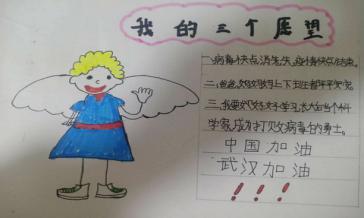 我的三个愿望
一、病毒快点消失,疫情快点结束。
二、爸爸 上下班都平安。
三、我要好好学习,长大当个科
学家,成为打败病毒的勇士。
中国加油
武汉加油
!!!